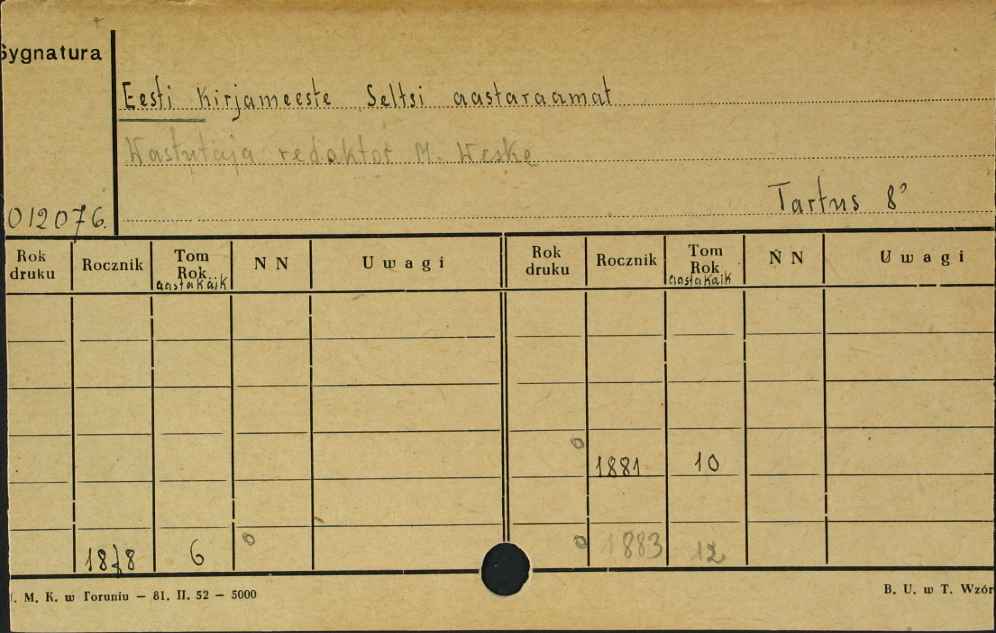 Sygnatura
Eesti Kirjameeste Seltsi aastaraamat
Wastutaja redaktor M. Weske
Tartus 8°
012076.
Rok druku Rocznik Tom Rok aastakäik N N Uwagi Rok druku Rocznik Tom Rok aastakäik N N Uwagi
1881 10
1878 6 1883 12
M. K. w Toruniu — 81. II. 52 — 5000 B. U. w T. Wzór